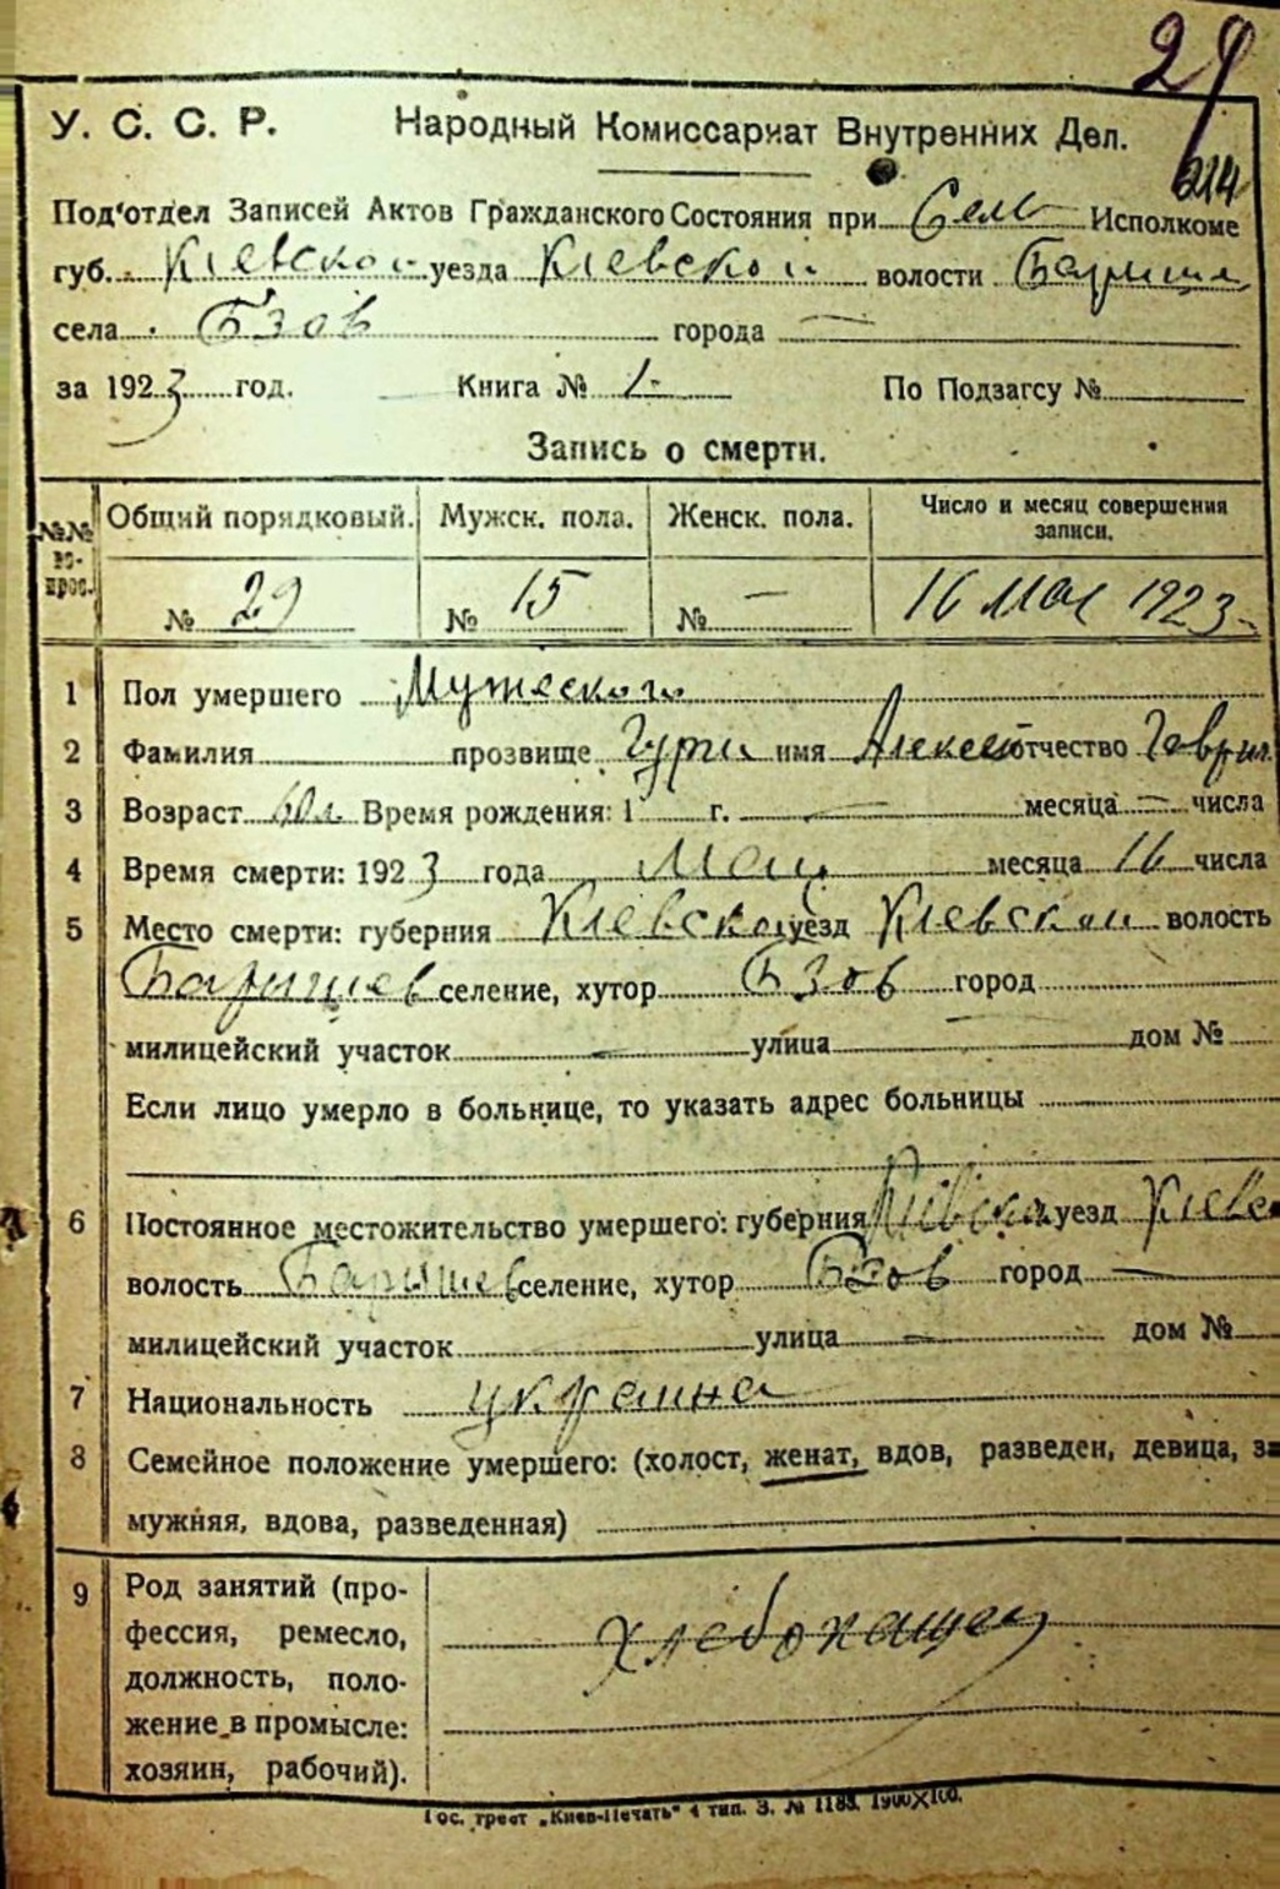 29
214
У. С. С. Р. Народный Комиссариат Внутренних Дел.
Под'отдел Записей Актов Гражданского Состояния при Сель Исполкоме
губ. Кіевской уезда Кіевской волости Бариш
села Бзов города —
за 1923 год. Книга № 1 По Подзагсу №
Запись о смерти.
№№ во-прос. Общий порядковый. Мужск. пола. Женск. пола. Число и месяц совершения записи.
№ 29 № 15 № — 16 Мая 1923
1 Пол умершего Мужеского
2 Фамилия прозвище имя Алексей отчество Гаврил
3 Возраст 60 л Время рождения: 1 г. — месяца — числа
4 Время смерти: 1923 года Мая месяца 16 числа
5 Место смерти: губерния Кіевской уезд Кіевской волость
Баришев селение, хутор Бзов город
милицейский участок — улица — дом №
Если лицо умерло в больнице, то указать адрес больницы
6 Постоянное местожительство умершего: губерния Киевская уезд Кіевс
волость Баришев селение, хутор Бзов город —
милицейский участок улица — дом №
7 Национальность украина
8 Семейное положение умершего: (холост, женат, вдов, разведен, девица, за
мужняя, вдова, разведенная)
9 Род занятий (про-
фессия, ремесло, хлебопашец
должность, поло-
жение в промысле:
хозяин, рабочий).
Гос. трест „Киев-Печать" 4 тип. З. № 1183. 1900×100.